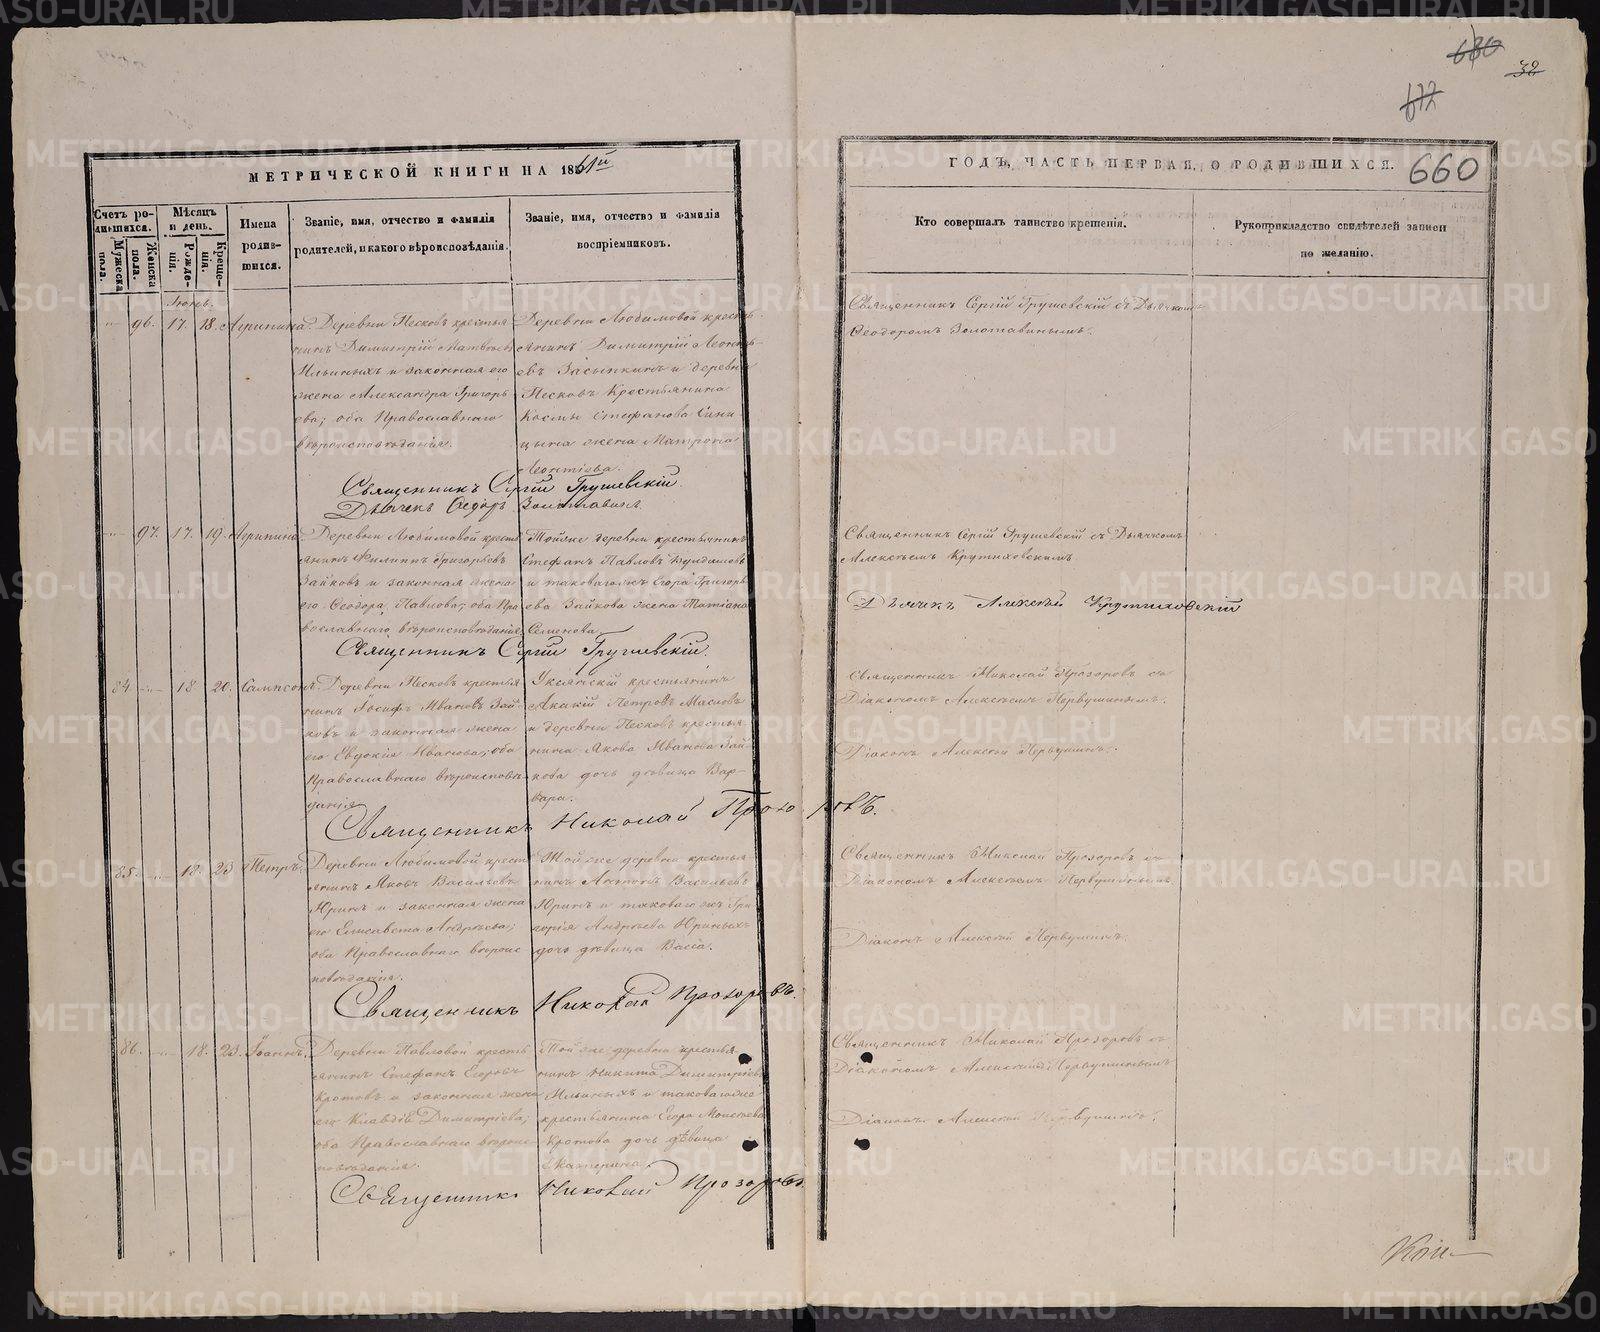 630
32
677
МЕТРИЧЕСКОЙ КНИГИ НА 1861й
ГОДЪ, ЧАСТЬ ПЕРВАЯ, О РОДИВШИХСЯ.
660
Счетъ ро-
дившихся.
Мужеска
пола.
Женска
пола.
Мѣсяцъ
и день.
Рожде-
нія.
Креще-
нія.
Имена
родив-
шихся.
Званіе, имя, отчество и фамилія
родителей, и какого вѣроисповѣданія.
Званіе, имя, отчество и фамилія
воспріемниковъ.
Кто совершалъ таинство крещенія.
Рукоприкладство свидѣтелей записи
по желанію.
Іюнь.
96. 17. 18. Агрипина.
Деревни Песковъ крестья
нинъ Димитрій Матвѣевъ
Ильиныхъ и законная его
жена Александра Григорь
ева; оба Православнаго
вѣроисповѣданія.
Деревни Любимовой кресть
янинъ Димитрій Леонть-
евъ Засыпкинъ и деревни
Песковъ Крестьянина
Космы Стефанова Сини
цына жена Матрона
Леонтіева.
Священникъ Сергій Грушевскій съ Дьячкомъ
Ѳеодоромъ Золотавинымъ.
Священникъ Сергій Грушевскій.
Дьячекъ Ѳедоръ Золотавинъ.
97. 17. 19. Агрипина
Деревни Любимовой кресть
янинъ Филипъ Григорьевъ
Зайковъ и законная жена
его Ѳеодора Павлова; оба Пра
вославнаго вѣроисповѣданія.
Тойже деревни крестьянинъ
Стефанъ Павловъ
и таковагожъ Егора Григорь
ева Зайкова жена Татіана
Семенова.
Священникъ Сергій Грушевскій съ Дьячкомъ
Алексѣемъ Крутиховскимъ
Дьячекъ Алексѣй Крутиховскій
Священникъ Сергій Грушевскій.
84. 18. 20. Сампсонъ.
Деревни Песковъ крестья
нинъ Іосифъ Ивановъ Зай
ковъ и законная жена
его Евдокія Иванова; оба
Православнаго вѣроисповѣ
данія
Уксянскій крестьянинъ
Акакій Петровъ Масловъ
и деревни Песковъ крестья
нина Якова Иванова Зай-
кова дочь дѣвица Вар-
вара.
Священникъ Николай Прозоровъ съ
Діакономъ Алексѣемъ Первушинымъ.
Діаконъ Алексѣй Первушинъ.
Священникъ Николай Прозоровъ.
85. 18. 23 Петръ.
Деревни Любимовой кресть
янинъ Яковъ Васильевъ
Юринъ и законная жена
его Елисавета Андреева;
оба Православнаго вѣроис
повѣданія.
Той же деревни крестья
нинъ Антонъ Васильевъ
Юринъ и таковаго жъ Гри
горія Андреева Юриныхъ
дочь дѣвица Васса.
Священникъ Николай Прозоровъ съ
Діакономъ Алексѣемъ Первушинымъ
Діаконъ Алексѣй Первушинъ.
Священникъ Николай Прозоровъ.
86. 18. 23. Іоаннъ.
Деревни Павловой кресть
янинъ Стефанъ Егоровъ
Кротовъ и законная жена
его Клавдія Димитріева;
оба Православнаго вѣроис
повѣданія.
Той же деревни крестья
нинъ Никита Димитріевъ
Ильиныхъ и таковагоже
крестьянина Егора Моисеева
Кротова дочь дѣвица
Екатерина.
Священникъ Николай Прозоровъ съ
Діакономъ Алексѣемъ Первушинымъ
Діаконъ Алексѣй Первушинъ.
Священникъ Николай Прозоровъ.
METRIKI.GASO-URAL.RU